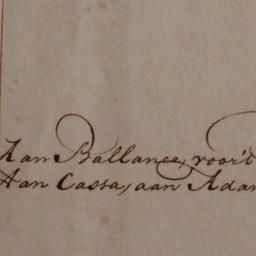 Aan Ballance, voor't
Aan Cassa, aan Adam